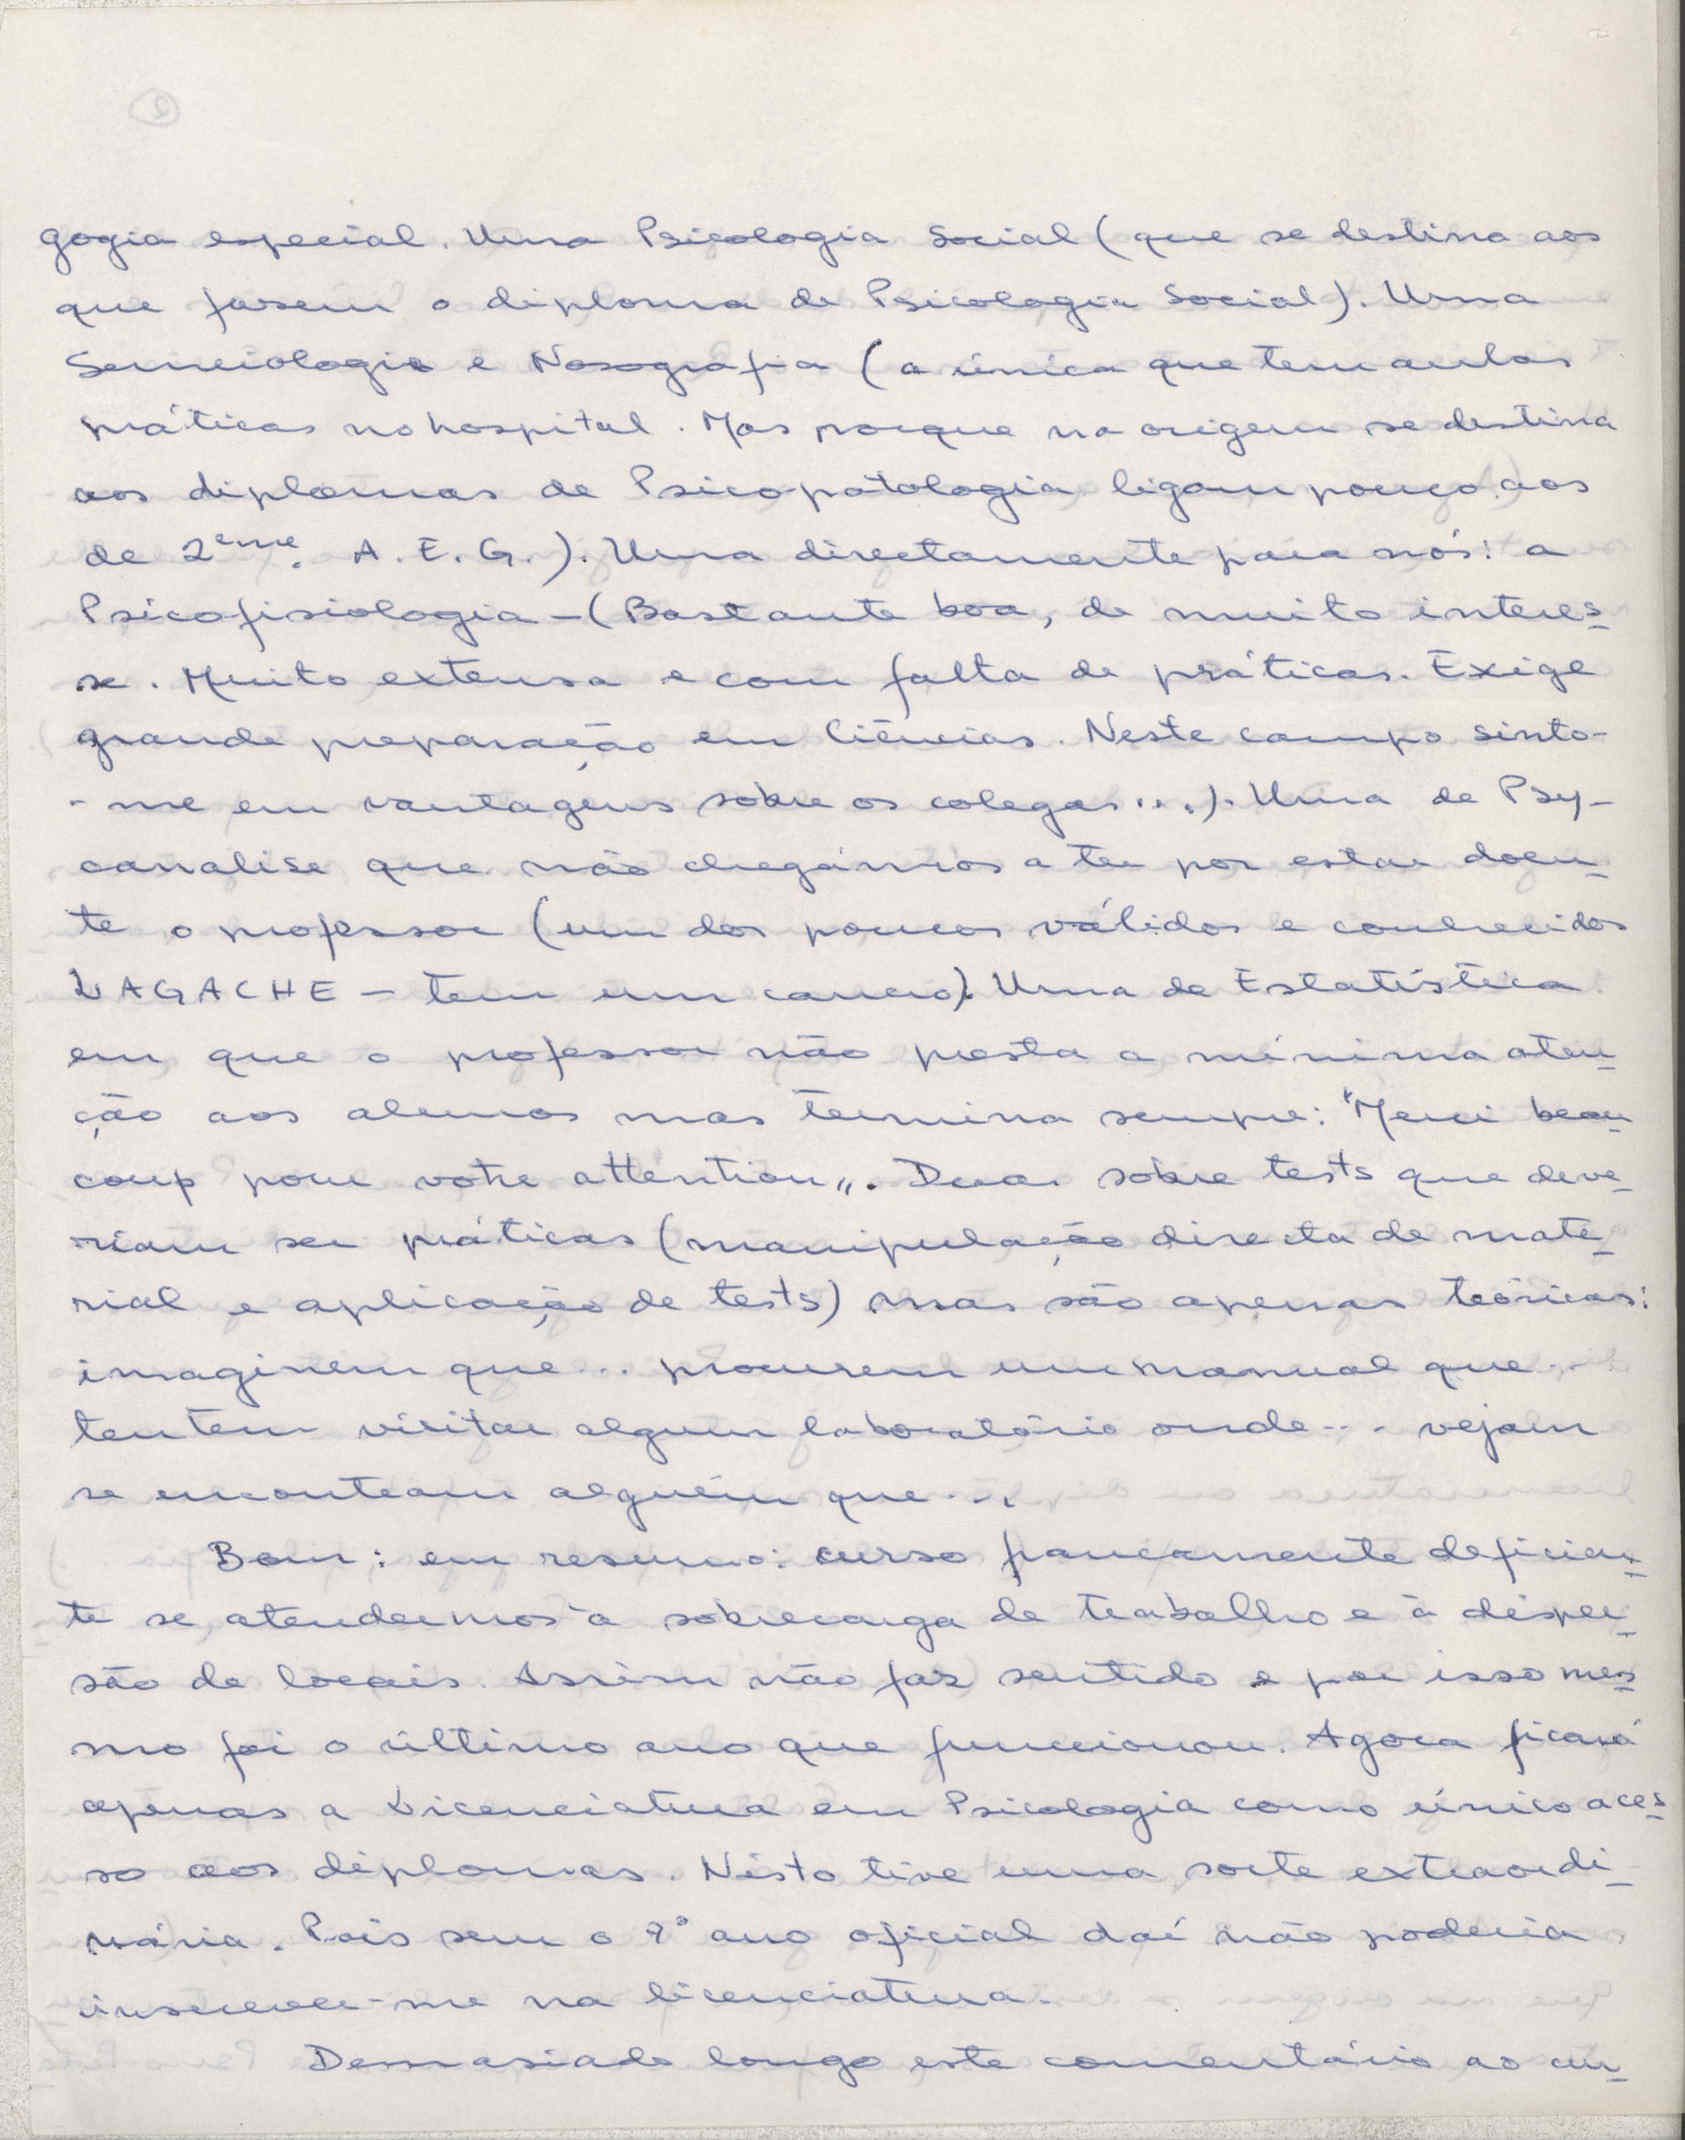 gogia especial. Uma Psicologia Social (que se destina aos
que fasem o diploma de Psicologia Social). Uma
Semeiologia e Nosografia (a única que tem aulas
práticas no hospital. Mas porque na origem se destina
aos diplomas de Psicopatologia ligam pouco aos
de 2ème. A. E. G.). Uma directamente para nós: a
Psicofisiologia - (Bastante boa, de muito interes-
se. Muito extensa e com falta de práticas. Exige
grande preparação em Ciências. Neste campo sinto-
-me em vantagens sobre os colegas...). Uma de Psy-
canalise que não chegámos a ter por estar doen-
te o professor (um dos poucos válidos e conhecidos
LAGACHE - tem um cancro). Uma de Estatística
em que o professor não presta a mínima aten-
ção aos alunos mas termina sempre: "Merci beau-
coup pour votre attention". Duas sobre tests que deve-
riam ser práticas (manipulação directa de mate-
rial e aplicação de tests) mas são apenas teóricas:
imaginem que... procurem um manual que...
tentem visitar algum laboratório onde... vejam
se encontram alguém que...
Bom: em resumo: curso francamente deficien-
te se atendermos à sobrecarga de trabalho e à disper-
são de locais. Assim não faz sentido e por isso mes-
mo foi o último ano que funcionou. Agora ficará
apenas a Licenciatura em Psicologia como único aces-
so aos diplomas. Nisto tive uma sorte extraordi-
nária. Pois sem o 7º ano oficial daí não poderia
inscrever-me na licenciatura.
Demasiado longo este comentário ao cur-